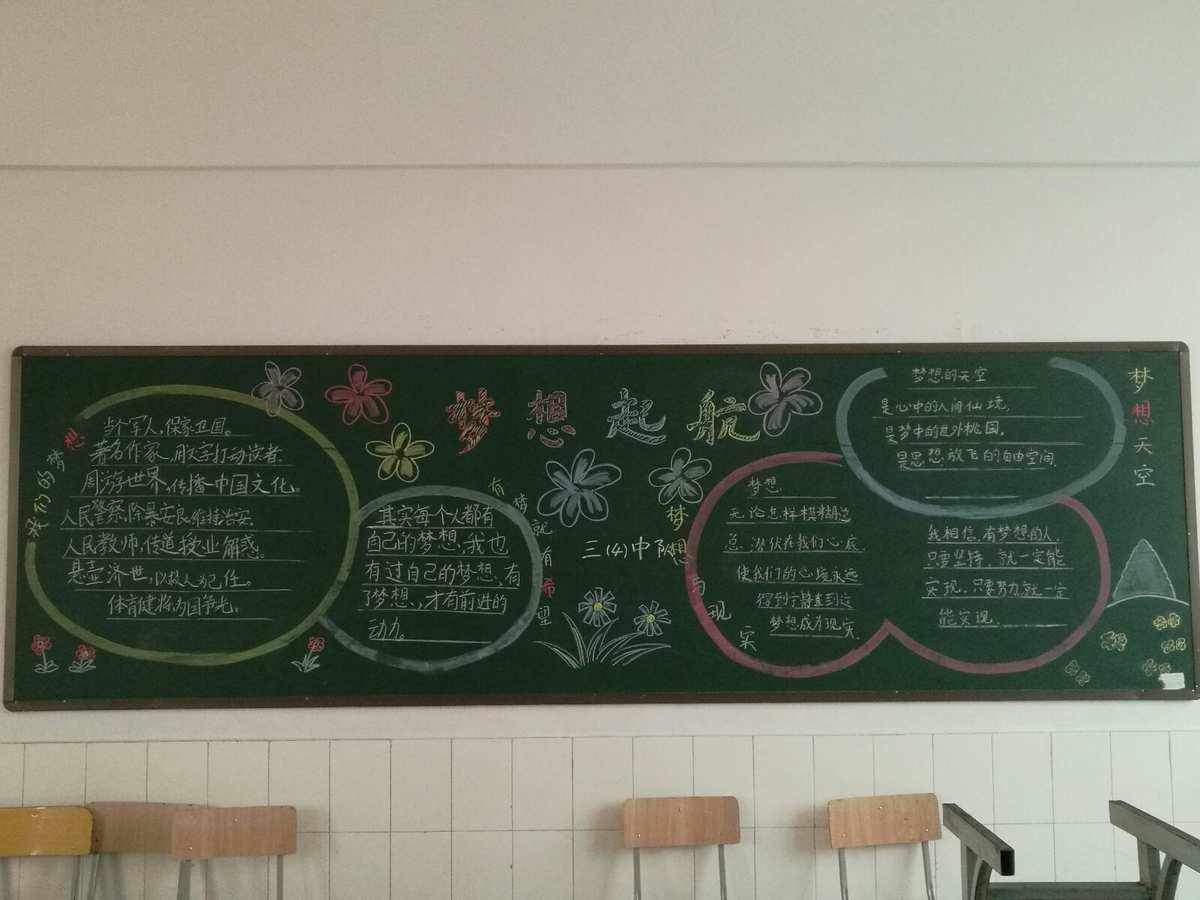 梦想起航
三(4)中队
我们的梦想
当个军人,保家卫国。
著名作家,用文字打动读者.
周游世界,传播中国文化。
人民警察,除暴安良,维持治安.
人民教师,传道授业解惑.
悬壶济世,以救人为己任。
体育健将为国争光。
有梦就有希望
其实每个人都有
自己的梦想,我也
有过自己的梦想,有
了梦想,才有前进的
动力。
梦想与现实
梦想
无论怎样模糊
总潜伏在我们心底.
使我们的心境永远
得到宁静直到这
梦想成为现实.
我相信,有梦想的人.
只要坚持,就一定能
实现.只要努力就一定
能实现.
梦想天空
梦想的天空
是心中的人间仙境,
是梦中的世外桃园,
是思想放飞的自由空间.